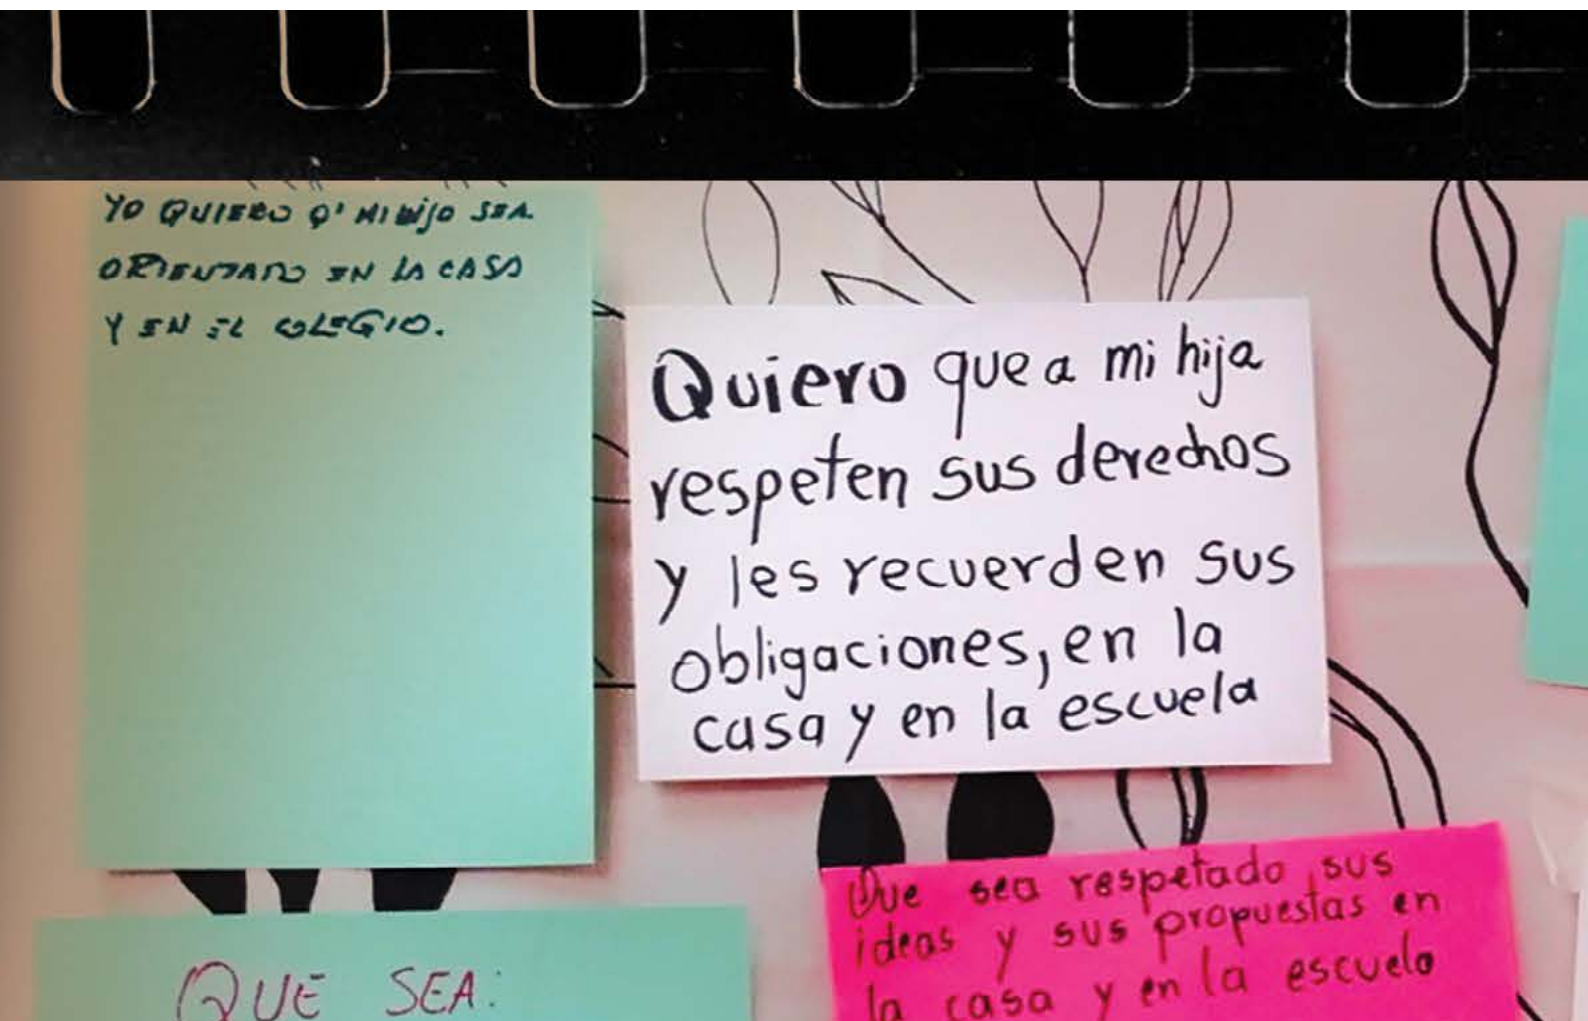 YO QUIERO Q' MI HIJO SEA
ORIENTADO EN LA CASA
Y EN EL COLEGIO.
Quiero que a mi hija
respeten sus derechos
y les recuerden sus
obligaciones, en la
casa y en la escuela
Que sea respetado sus
ideas y sus propuestas en
la casa y en la escuela
QUE SEA: